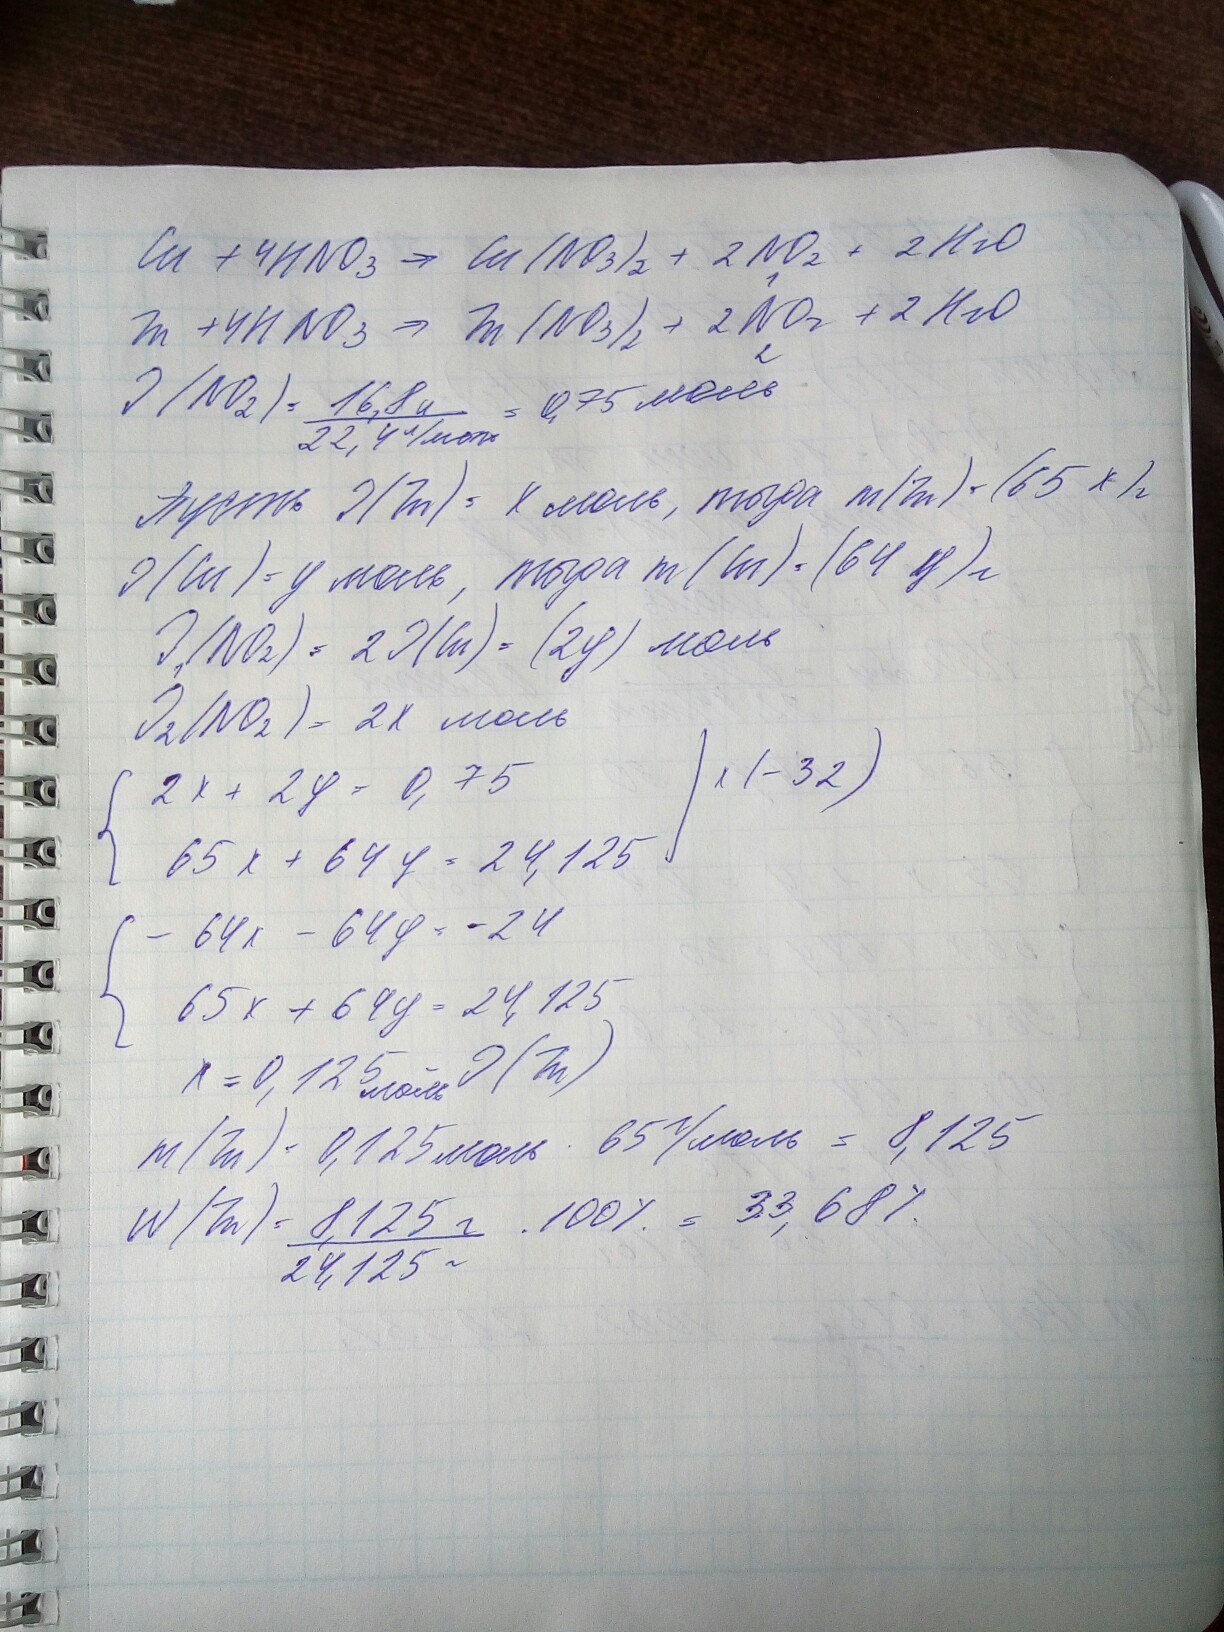 Cu + 4HNO₃ → Cu(NO₃)₂ + 2NO₂ + 2H₂O
1
Zn + 4HNO₃ → Zn(NO₃)₂ + 2NO₂ + 2H₂O
2
ν(NO₂) = 16,8 л / 22,4 л/моль = 0,75 моль
Пусть ν(Zn) = x моль, тогда m(Zn) = (65 x) г
ν(Cu) = y моль, тогда m(Cu) = (64 y) г
ν₁(NO₂) = 2ν(Cu) = (2y) моль
ν₂(NO₂) = 2x моль
{ 2x + 2y = 0,75 | x(-32)
65x + 64y = 24,125
{ -64x - 64y = -24
65x + 64y = 24,125
x = 0,125 моль ν(Zn)
m(Zn) = 0,125 моль · 65 г/моль = 8,125
W(Zn) = 8,125 г / 24,125 г · 100% = 33,68%.